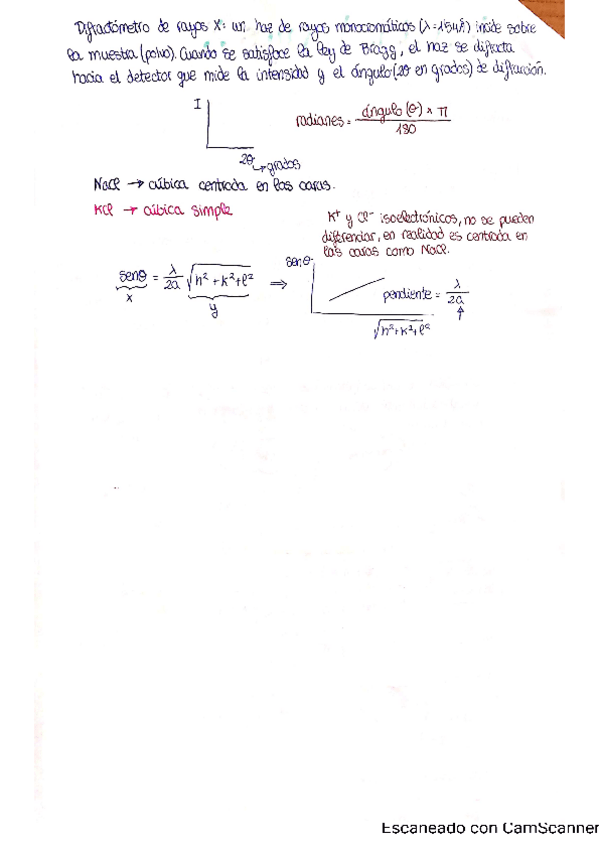 Difractómetro de rayos X: un haz de rayos monocromáticos (λ=1'54Å) incide sobre
la muestra (polvo). Cuando se satisface la ley de Bragg, el haz se difracta
hacia el detector que mide la intensidad y el ángulo (2θ en grados) de difracción.
I
2θ → grados
radianes = ángulo (θ) × π / 180
NaCl → cúbica centrada en las caras.
KCl → cúbica simple
K⁺ y Cl⁻ isoelectrónicos, no se pueden
diferenciar, en realidad es centrada en
las caras como NaCl.
senθ = λ/2a √h²+k²+l² ⇒
x
y
senθ
pendiente = λ/2a
√h²+k²+l²
Escaneado con CamScanner